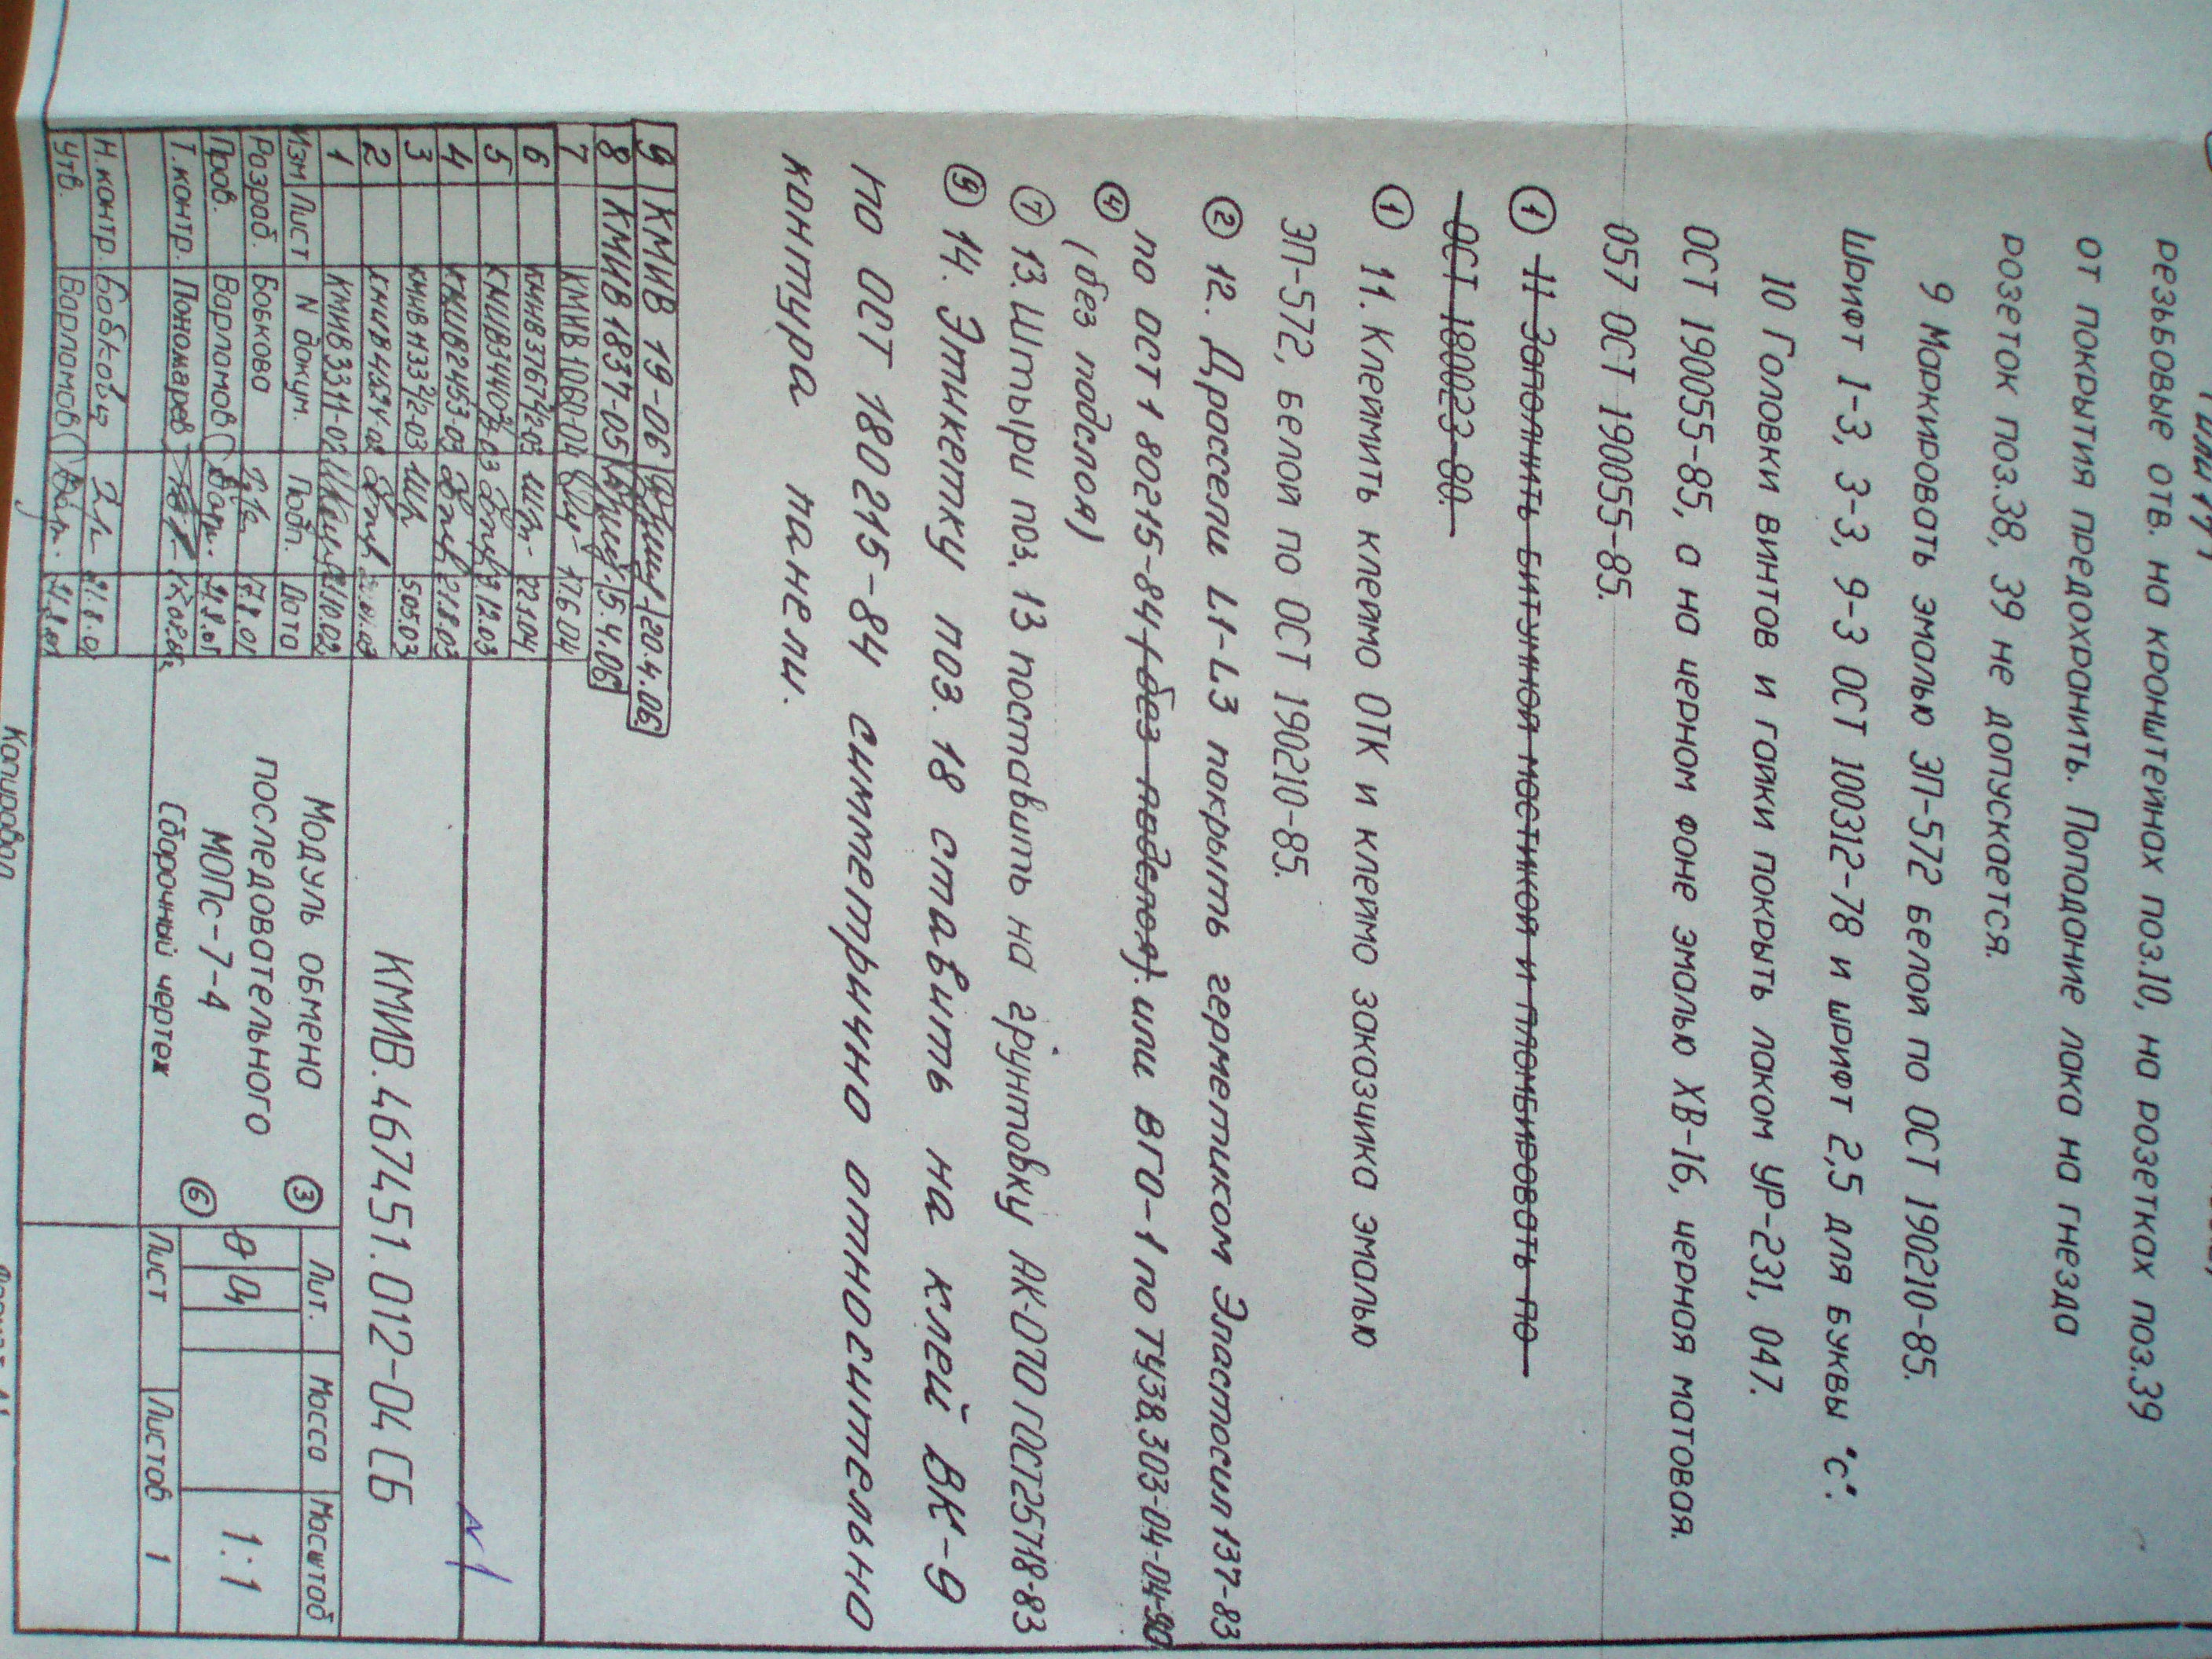 резьбовые отв. на кронштейнах поз.10, на розетках поз.39
от покрытия предохранить. Попадание лака на гнезда
розеток поз.38, 39 не допускается.
9 Маркировать эмалью ЭП-572 белой по ОСТ 190210-85.
Шрифт 1-3, 3-3, 9-3 ОСТ 100312-78 и шрифт 2,5 для буквы "с".
10 Головки винтов и гайки покрыть лаком УР-231, 047.
ОСТ 190055-85, а на черном фоне эмалью ХВ-16, черная матовая.
057 ОСТ 190055-85.
① 11 Заполнить битумной мастикой и пломбировать по
ОСТ 180023-80.
① 11. Клеймить клеймо ОТК и клеймо заказчика эмалью
ЭП-572, белой по ОСТ 190210-85.
② 12. Дроссели L1-L3 покрыть герметиком Эластосил 137-83
по ОСТ 1 80215-84 (без подслоя) или ВГО-1 по ТУ38.303-04-04-90
④ (без подслоя)
⑦ 13. Штыри поз. 13 поставить на грунтовку АК-070 ГОСТ25718-83
⑨ 14. Этикетку поз. 18 ставить на клей ВК-9
по ОСТ 180215-84 симметрично относительно
контура панели.
9 КМИВ 19-06 20.4.06
8 КМИВ 1837-05 15.4.06
7 КМИВ1060-04 17.6.04
6 КМИВ3767½-03 22.1.04
5 КМИВ3440½-03 3.12.03
4 КМИВ2453-03 21.8.03
3 КМИВ1133½-03 5.05.03
2 КМИВ
1 КМИВ3311-02 10.02
Изм Лист N докум. Подп. Дата
Разраб. Бобкова 17.8.01
Пров. Варламов
Т.контр. Пономарев
Н.контр. Бобкова
Утв. Варламов
КМИВ.467451.012-04 СБ
Модуль обмена
последовательного
МОПс-7-4
Сборочный чертеж
③
⑥
Лит. Масса Масштаб
1:1
Лист Листов 1
Копировал